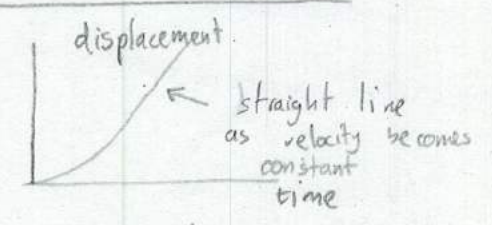 displacement.
straight line
as velocity becomes
constant
time